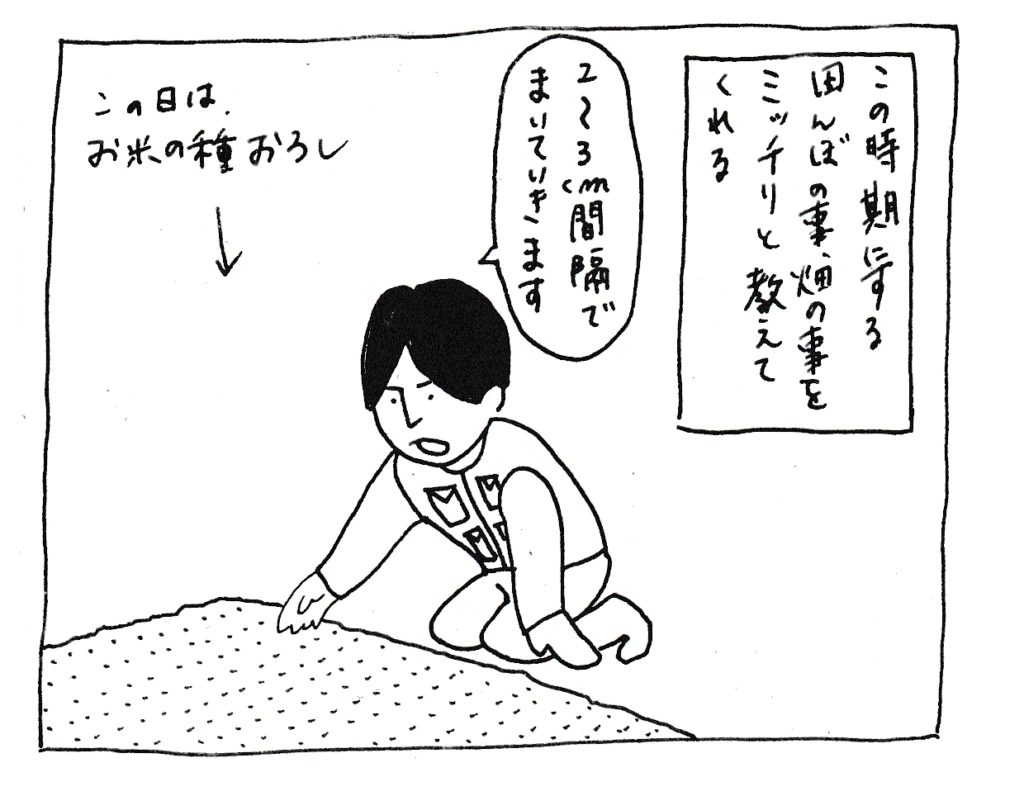 この時期にする
田んぼの事、畑の事を
ミッチリと教えて
くれる
2〜3cm間隔で
まいていきます
この日は、
お米の種おろし